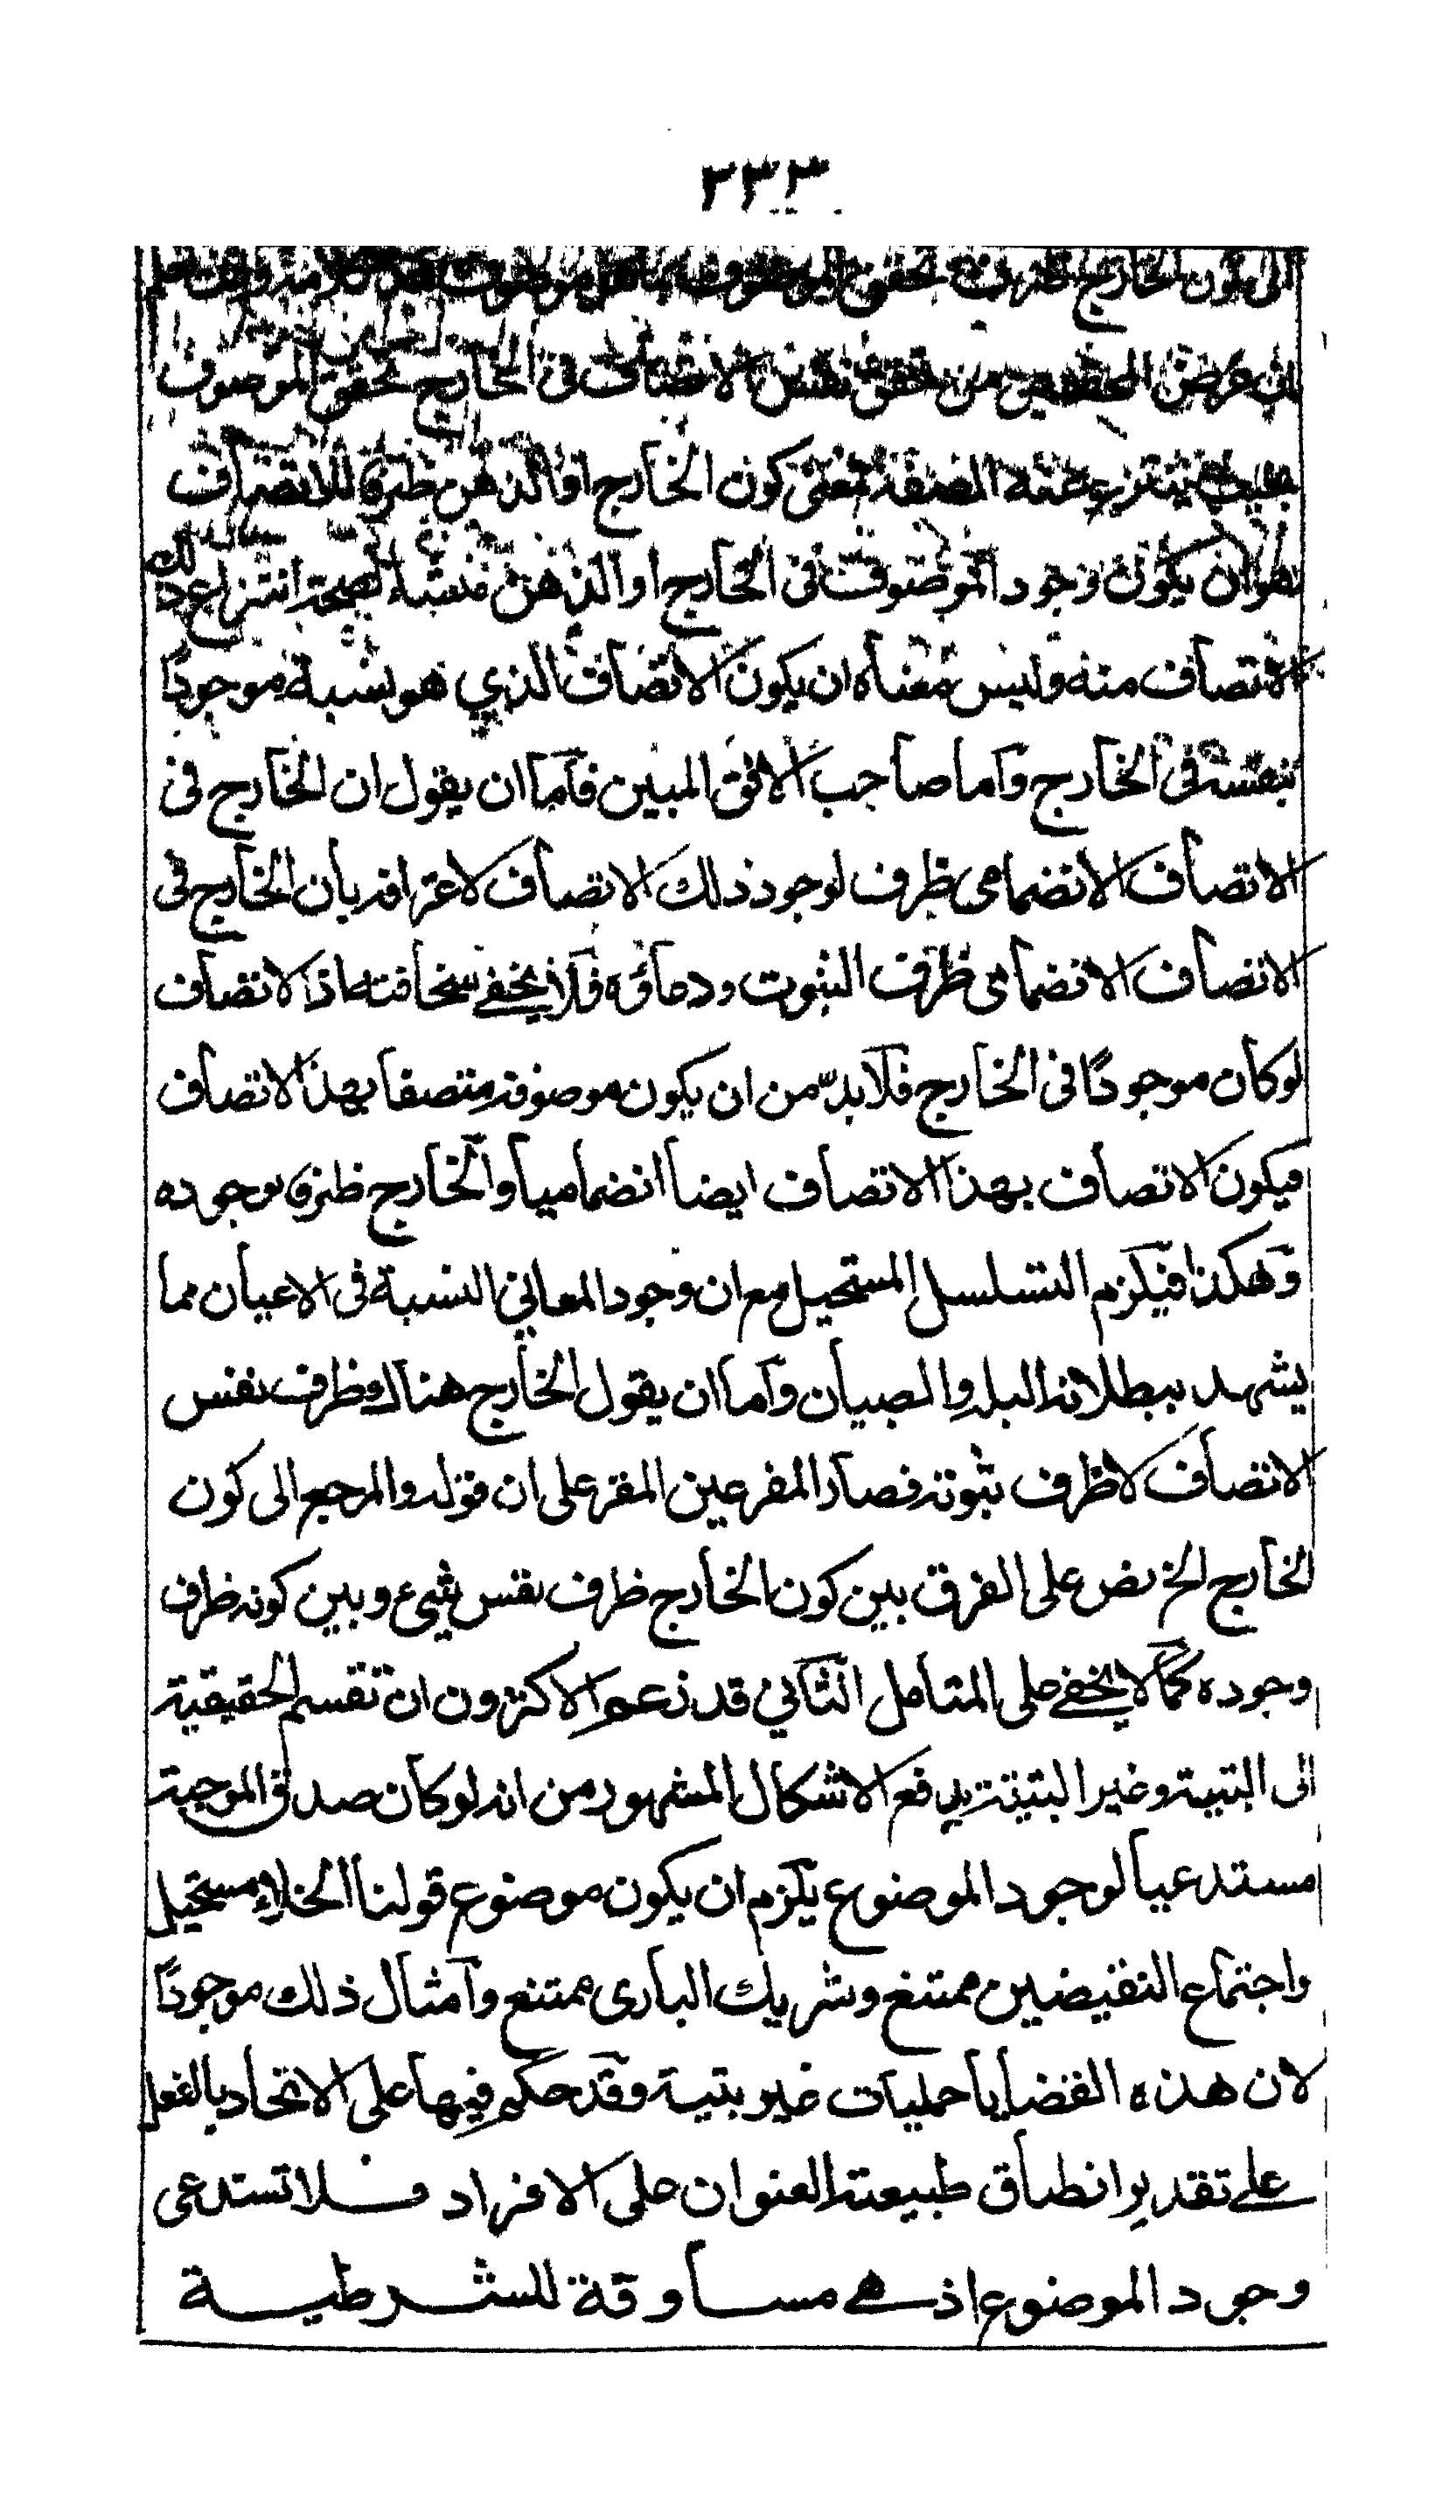 ٢٣٣
الى كون الخارج
من تحقق نفس الاتصاف فى الخارج تحقق الموصوف
بحيث ينتزع عنه الصفة فمعنى كون الخارج او الذهن ظرفا للاتصاف
هو ان يكون وجود الموصوف فى الخارج او الذهن منشأ لصحة انتزاع ذلك
الاتصاف منه وليس معناه ان يكون الاتصاف الذي هو نسبة موجودًا
بنفسه فى الخارج وآما صاحب الافق المبين فآما ان يقول ان الخارج فى
الاتصاف الانضمامى ظرف لوجود ذلك الاتصاف لاعترافه بان الخارج فى
الاتصاف الانضمامى ظرف الثبوت ودعاؤه فلا يخفے سخافته اذ الاتصاف
لو كان موجودًا فى الخارج فلا بدّ من ان يكون موصوفه متصفا بهذا الاتصاف
فيكون الاتصاف بهذا الاتصاف ايضا انضماميا والخارج ظرف لوجوده
وهكذا فيلزم التسلسل المستحيل مع ان وجود المعاني النسبة فى الاعيان مما
يشهد ببطلانه البله والصبيان وآما ان يقول الخارج هناك ظرف نفس
الاتصاف لا ظرف ثبوته فصار المفر عين المقر على ان قوله والمرجع الى كون
الخارج الخ نص على الفرق بين كون الخارج ظرف نفس شيء وبين كونه ظرف
وجوده كما لا يخفے على المتأمل الثاني قد زعم الاكثرون ان تقسيم الحقيقية
الى البتية وغير البتية يدفع الاشكال المشهور من انه لو كان صدق الموجبة
مستدعيا لوجود الموضوع يلزم ان يكون موضوع قولنا الخلاء مستحيل
واجتماع النقيضين ممتنع وشريك البارى ممتنع وآمثال ذلك موجودًا
لان هذه القضايا حمليات غير بتية وقد حكم فيها على الاتحاد بالفعل
علے تقدير انطباق طبيعة العنوان على الافراد فلا تستدعى
وجود الموضوع اذ هے مساوقة للشرطية